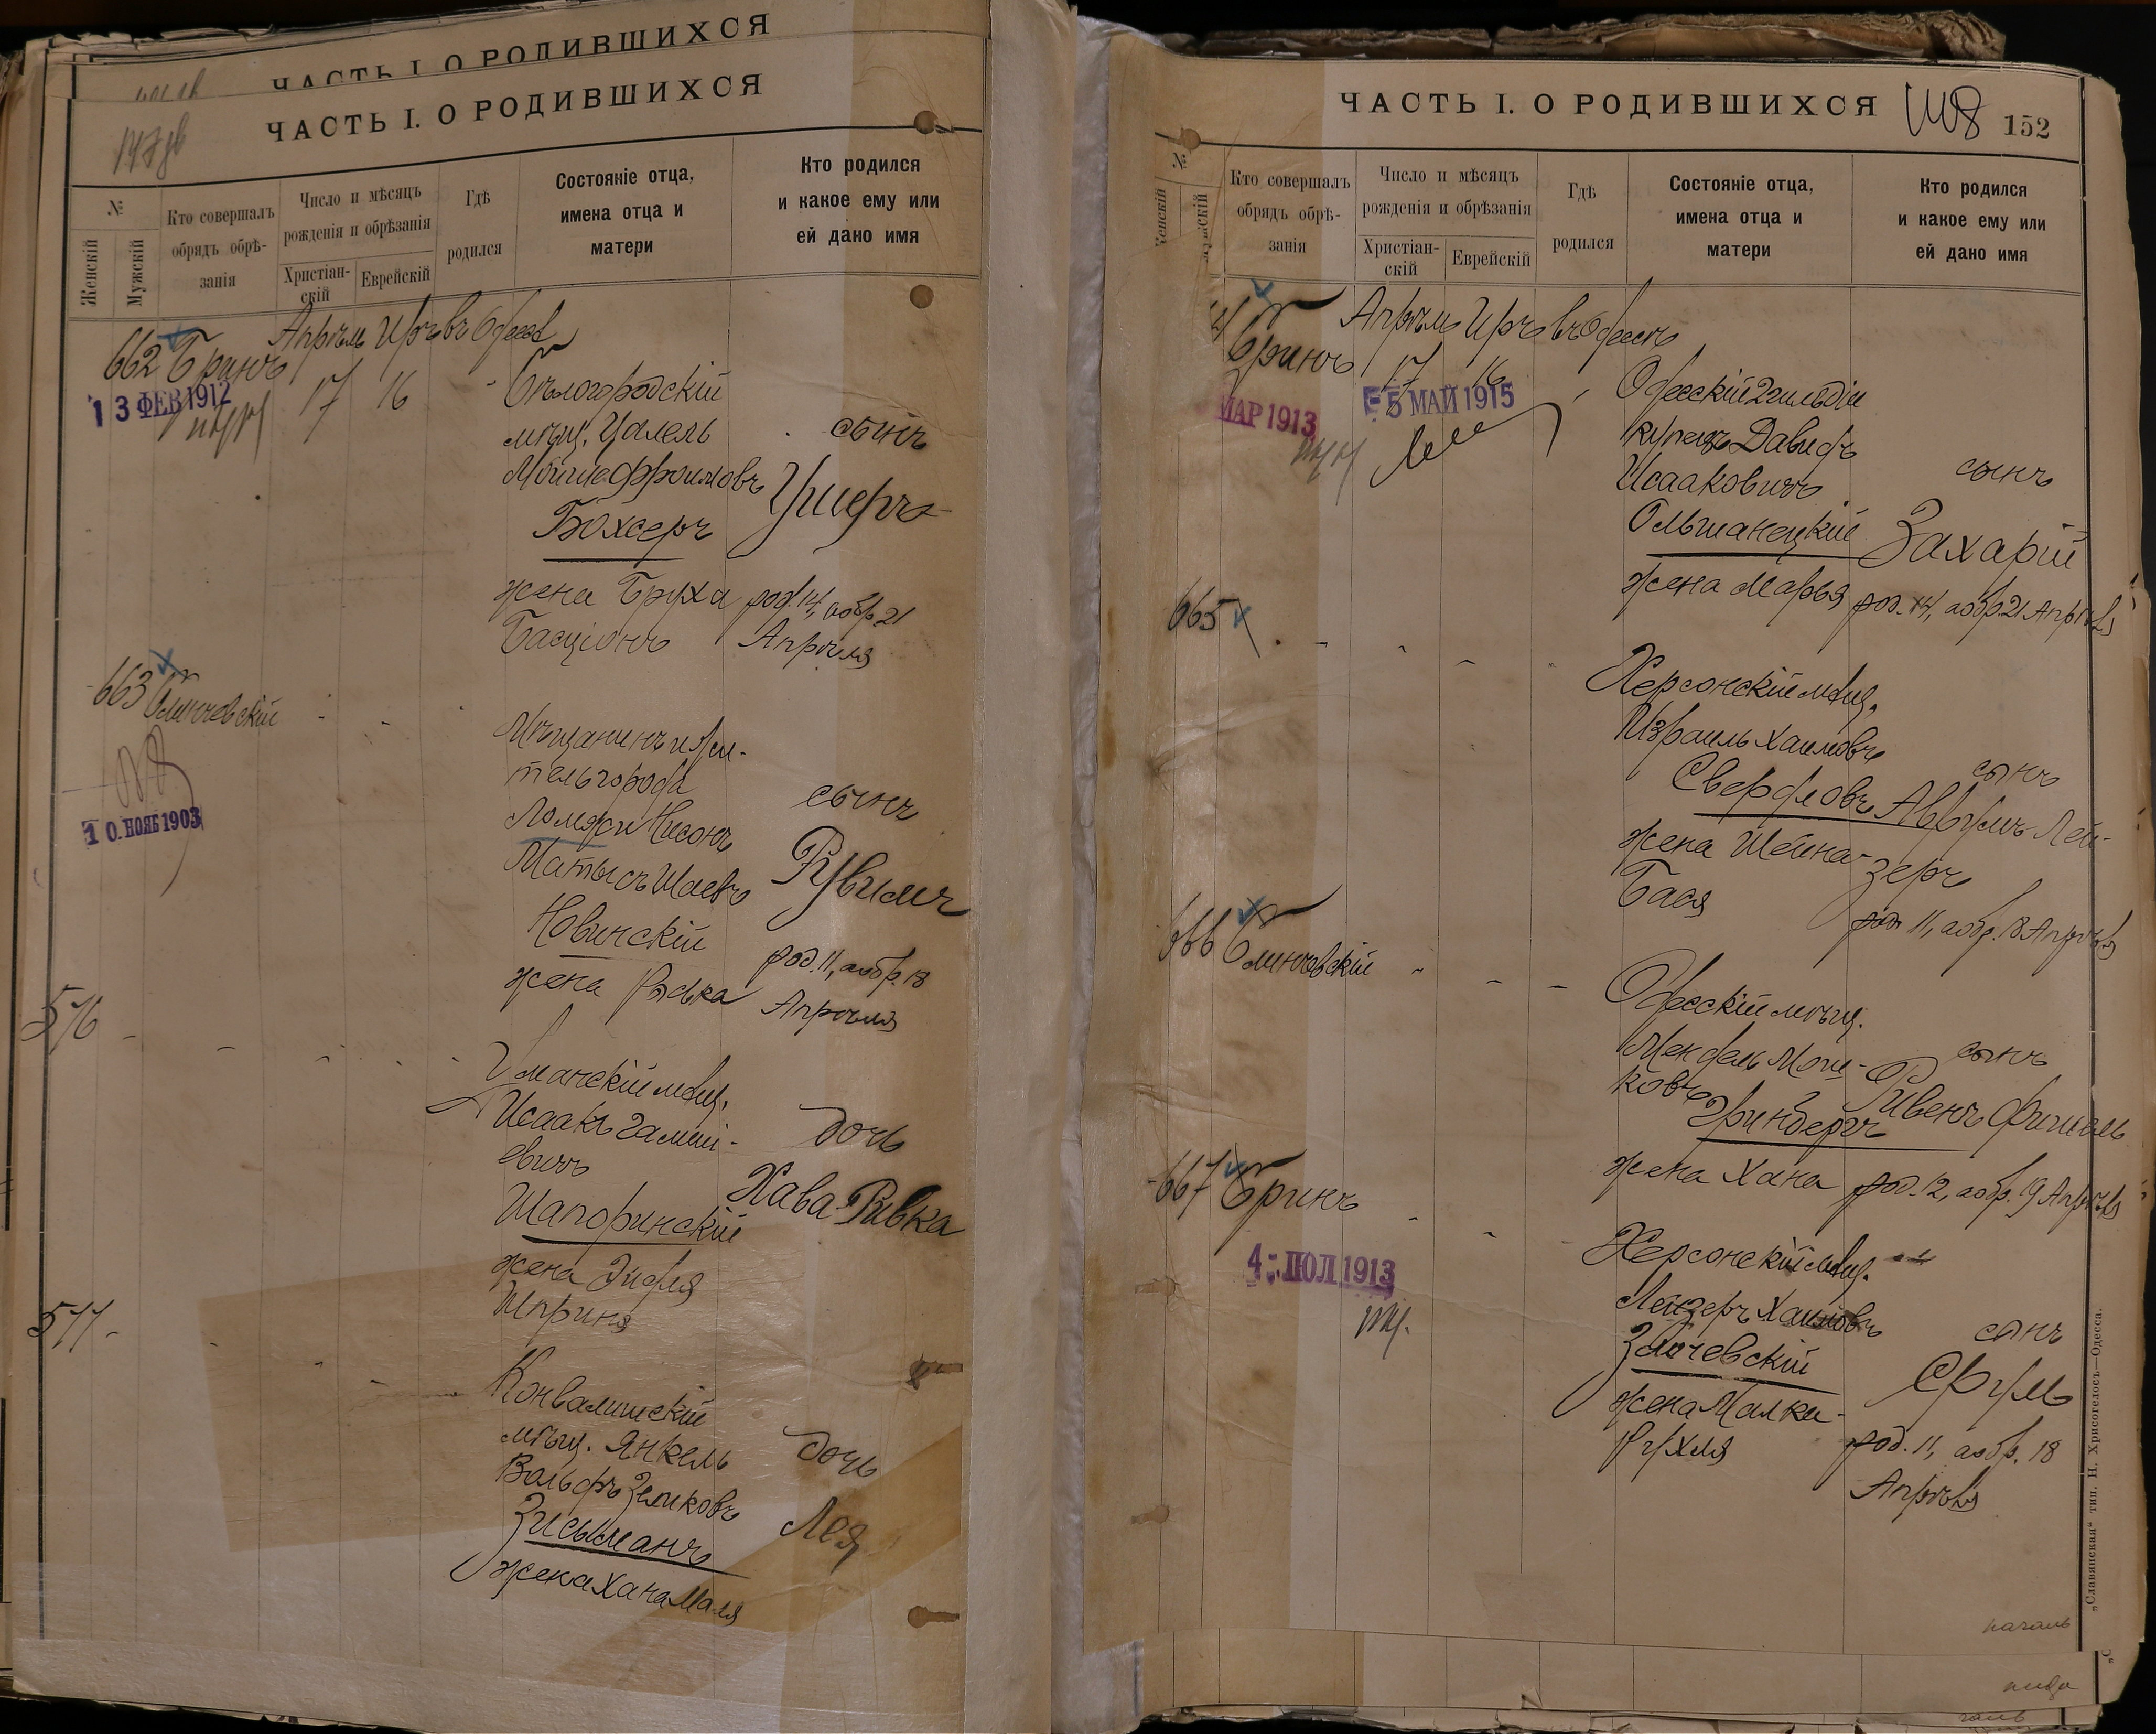 ЧАСТЬ I. О РОДИВШИХСЯ
ЧАСТЬ I. О РОДИВШИХСЯ
№
Женскій
Мужскій
Кто совершалъ
обрядъ обрѣ-
занія
Число и мѣсяцъ
рожденія и обрѣзанія
Христіан-
скій
Еврейскій
Гдѣ
родился
Состояніе отца,
имена отца и
матери
Кто родился
и какое ему или
ей дано имя
Апрѣль Иръ въ Одессѣ
662 Бринъ 17 16
13 ФЕВ 1912
Бѣлогородскій
мѣщ. Цалель
Мойше Фроимовъ
Бохсеръ
жена Бруха
Басціонъ
сынъ
Ушеръ
род. 14, а обр. 21
Апрѣля
663
10. НОЯБ 1903
Мѣщанинъ и жи-
тель города
Ломжи Нисонъ
Матысъ Шаевъ
Новинскій
жена Рывка
сынъ
Рувимъ
род. 11, а обр. 18
Апрѣля
576
Уманскій мѣщ.
Исаакъ Гамші-
евичъ
Шапоринскій
жена Эйдля
Шприня
дочь
Хава-Ривка
577
Конвалишскій
мѣщ. Янкель
Вольфъ Зеликовъ
Зисьманъ
жена Хана Маля
дочь
Лея
ЧАСТЬ I. О РОДИВШИХСЯ
152
№
Женскій
Мужскій
Кто совершалъ
обрядъ обрѣ-
занія
Число и мѣсяцъ
рожденія и обрѣзанія
Христіан-
скій
Еврейскій
Гдѣ
родился
Состояніе отца,
имена отца и
матери
Кто родился
и какое ему или
ей дано имя
Апрѣль Иръ въ Одессѣ
Бринъ 17 16
МАР 1913
5 МАЙ 1915
Одесскій 2 гильдіи
купецъ Давидъ
Исааковичъ
Ольшанецкій
жена Марья
сынъ
Захарій
род. 14, а обр. 21 Апрѣля
665
Херсонскій мѣщ.
Израиль Хаимовъ
Свердловъ
жена Шейна-
Бася
сынъ
Аврумъ Лей-
зеръ
род 11, а обр. 18 Апрѣля
666
Одесскій мѣщ.
Мендель Мош-
ковъ
Гринбергъ
жена Хана
сынъ
Рувенъ Фишель
род. 12, а обр. 19 Апрѣля
667 Бринъ
4 ІЮЛ 1913
Херсонскій мѣщ.
Лейзеръ Хаимовъ
Злочевскій
жена Малка-
Рухля
сынъ
Срулъ
род. 11, а обр. 18
Апрѣля
„Славянская" тип. Н. Хрисогелосъ—Одесса.